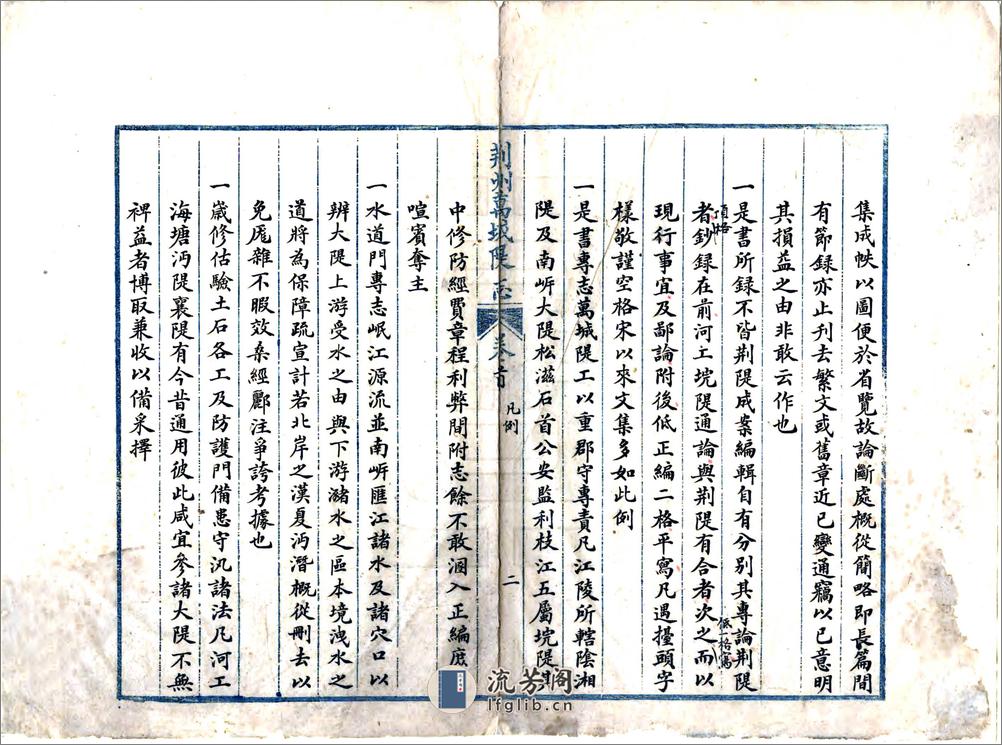 集成帙以圖便於省覽故論斷處概從簡略即長篇間
有節録亦止刊去繁文或舊章近已變通竊以已意明
其損益之由非敢云作也
一是書所録不皆荆隄成案編輯自有分別其專論荆隄
頂格
者鈔録在前河工垸隄通論與荆隄有合者次之而以
低一格寫
現行事宜及鄙論附後低正編二格平寫凡遇擡頭字
様敬謹空格宋以來文集多如此例
一是書專志萬城隄工以重郡守專責凡江陵所轄陰湘
隄及南岍大隄松滋石首公安監利枝江五屬垸隄其
荆州萬城隄志
卷首
凡例
二
中修防經費章程利弊間附志餘不敢溷入正編庶
喧賓奪主
一水道門專志岷江源流並南岍匯江諸水及諸穴口以
辨大隄上游受水之由與下游瀦水之區本境洩水之
道將為保障疏宣計若北岸之漢夏沔潛概從刪去以
免厖雜不暇效桑經酈注爭誇考據也
一歲修估驗土石各工及防護門備患守汛諸法凡河工
海塘沔隄襄隄有今昔通用彼此咸宜參諸大隄不無
裨益者博取兼收以備采擇
流芳阁
lfglib.cn